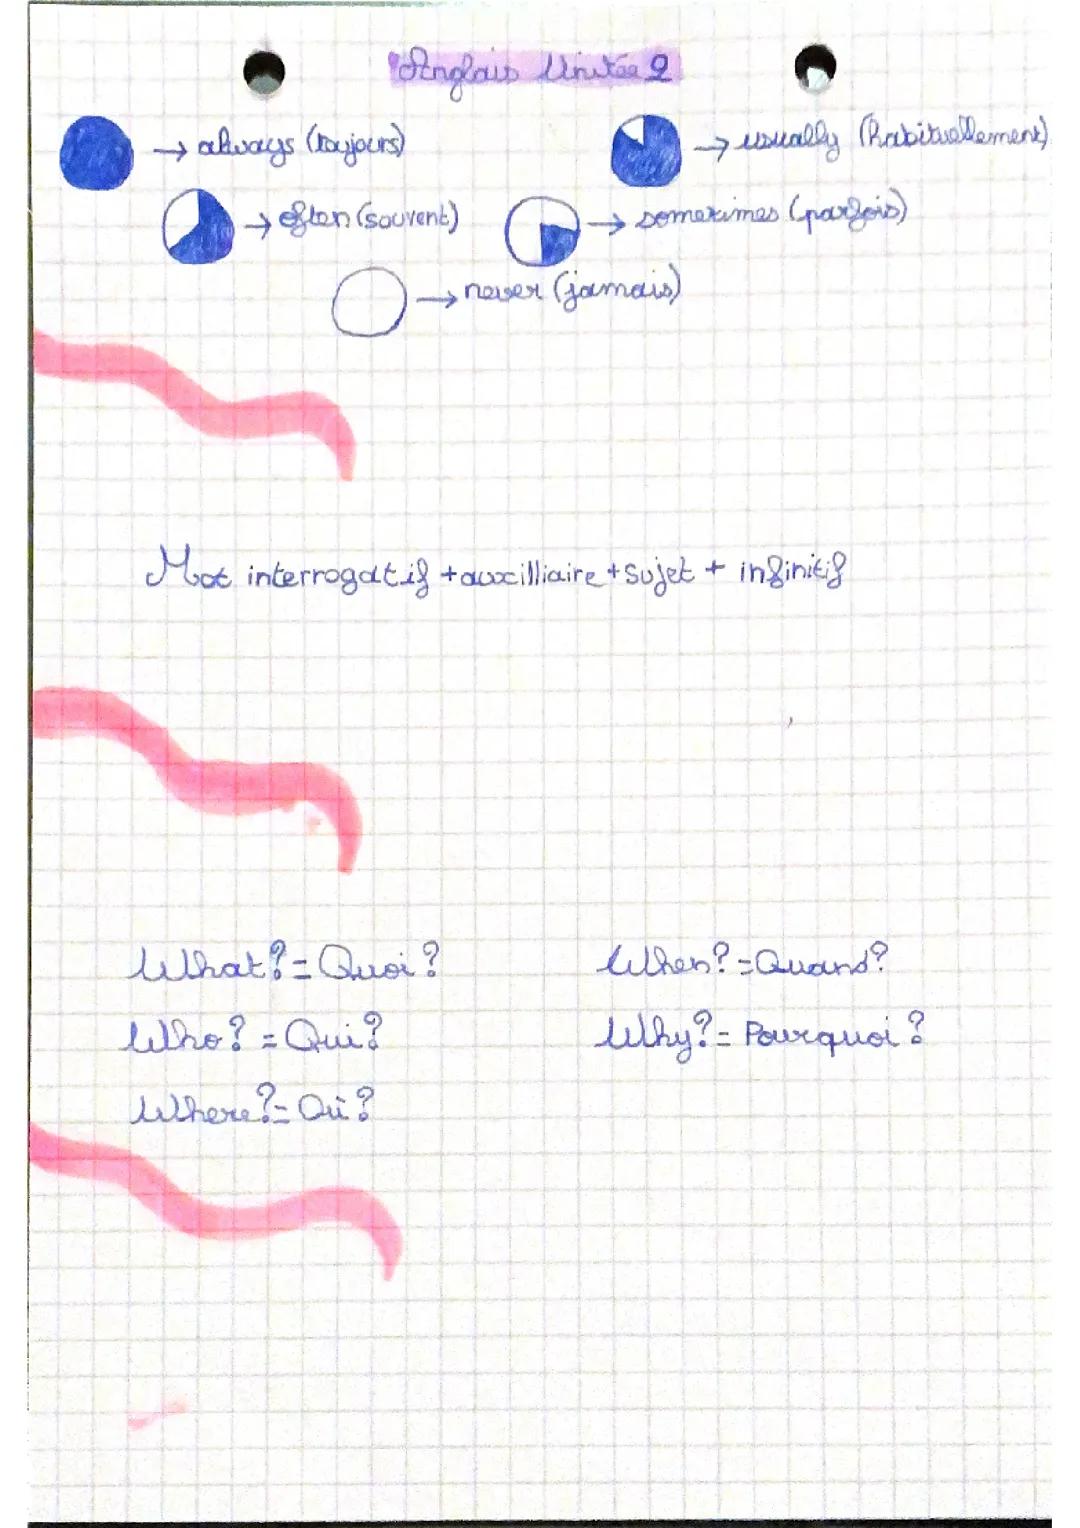 Anglais Unitée 2
→ always (toujours) → usually (habituellement)
→ often (souvent) → sometimes (parfois)
→ never (jamais)
Mot interrogatif + auxcilliaire + Sujet + infinitif
What? = Quoi? When? = Quand?
Who? = Qui? Why? = Pourquoi?
Where? = Où?